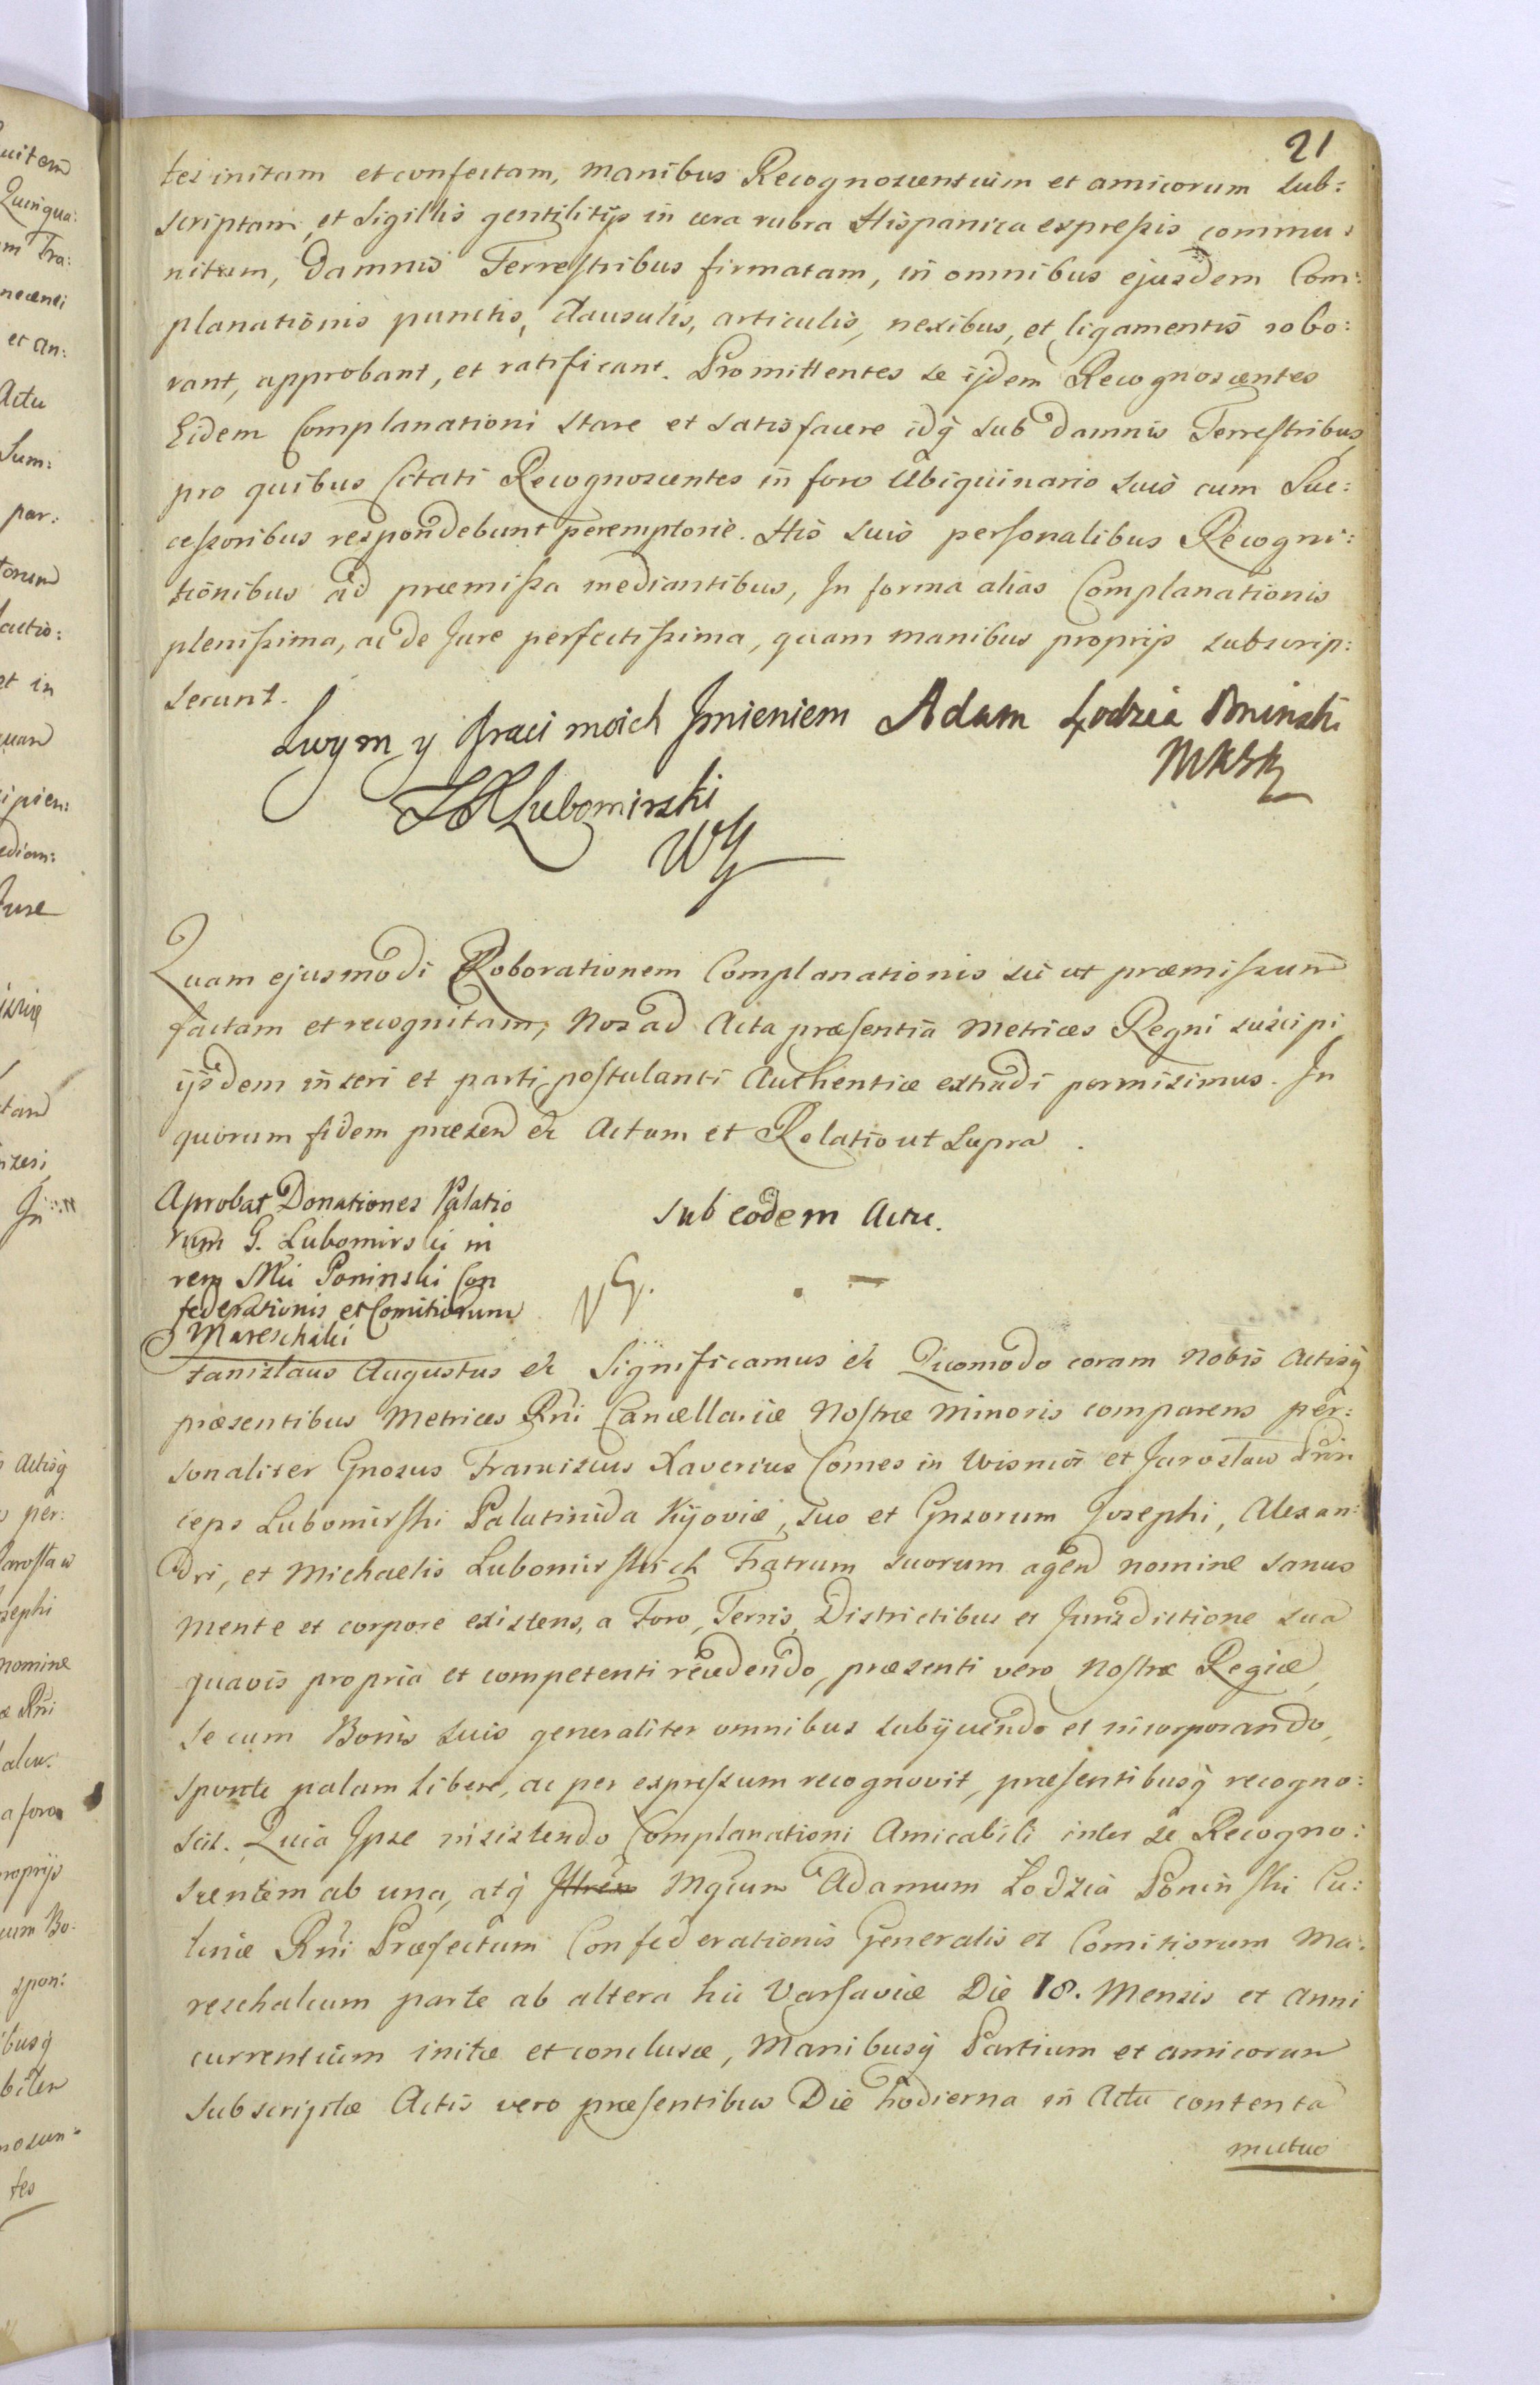 21
tes initam et confectam, manibus Recognoscentium et amicorum sub:
scriptam, et Sigillis gentilitijs in cera rubra Hispanica expressis commu:
nitam, Damnis Terrestribus firmatam, in omnibus ejusdem Com:
planationis punctis, Clausulis, articulis, nexibus, et ligamentis robo:
rant, approbant, et ratificant. Promittentes se ijdem Recognoscentes
Eidem Complanationi stare et satisfacere idq̃ sub Damnis Terrestribus,
pro quibus Citati Recognoscentes in foro Ubiquinario suis cum Suc:
cessoribus respondebunt peremptorie. His suis personalibus Recogni:
tionibus ad præmissa mediantibus, In forma alias Complanationis
plenissima, ac de Jure perfectissima, quam manibus proprijs subscrip:
serunt.
Swym y Braci moich Jmieniem Adam Łodzia Poninski
MKSK
FX Lubomirski
WK
Quam ejusmodi Roborationem Complanationis sic ut præmissum
factam et recognitam, Nos ad Acta præsentia Metrices Regni suscipi
ijsdem inseri et parti postulanti Authentice extradi permisimus. In
quorum fidem præsen & Actum et Relatio ut Supra.
Aprobat Donationes Palatio
rum G. Lubomirski in
rem Mci Poninski Con
federationis et Comitiorum
Mareschalci
Sub eodem Actu.
Stanislaus Augustus & Significamus & Quomodo coram Nobis Actisq̃
præsentibus Metrices Rñi Cancellariæ Nostræ Minoris comparens per:
sonaliter Gnosus Franciscus Xaverius Comes in Wisnicz et Jarosław Prin
ceps Lubomirski Palatinida Kijoviæ, suo et Gnsorum Josephi, Alexan:
dri, et Michaelis Lubomirskich Fratrum suorum agen nomine sanus
mente et corpore existens, a Foro, Terris, Districtibus et Jurisdictione sua
quavis propria et competenti recedendo, præsenti vero Nostræ Regiæ,
se cum Bonis suis generaliter omnibus subijciendo et incorporando,
sponte palam libere, ac per expressum recognovit, præsentibusq̃ recogno:
scit. Quia Ipse insistendo Complanationi Amicabili inter se Recogno:
scentem ab una, atq̃ Mgcum Adamum Łodzia Poninski Cu:
linæ Rñi Præfectum Confederationis Generalis et Comitiorum Ma:
reschalcum parte ab altera hic Varsaviæ Die 18. Mensis et Anni
currentium initæ et conclusæ, Manibusq̃ Partium et amicorum
subscriptæ Actis vero præsentibus Die hodierna in Actu contenta
mutuo